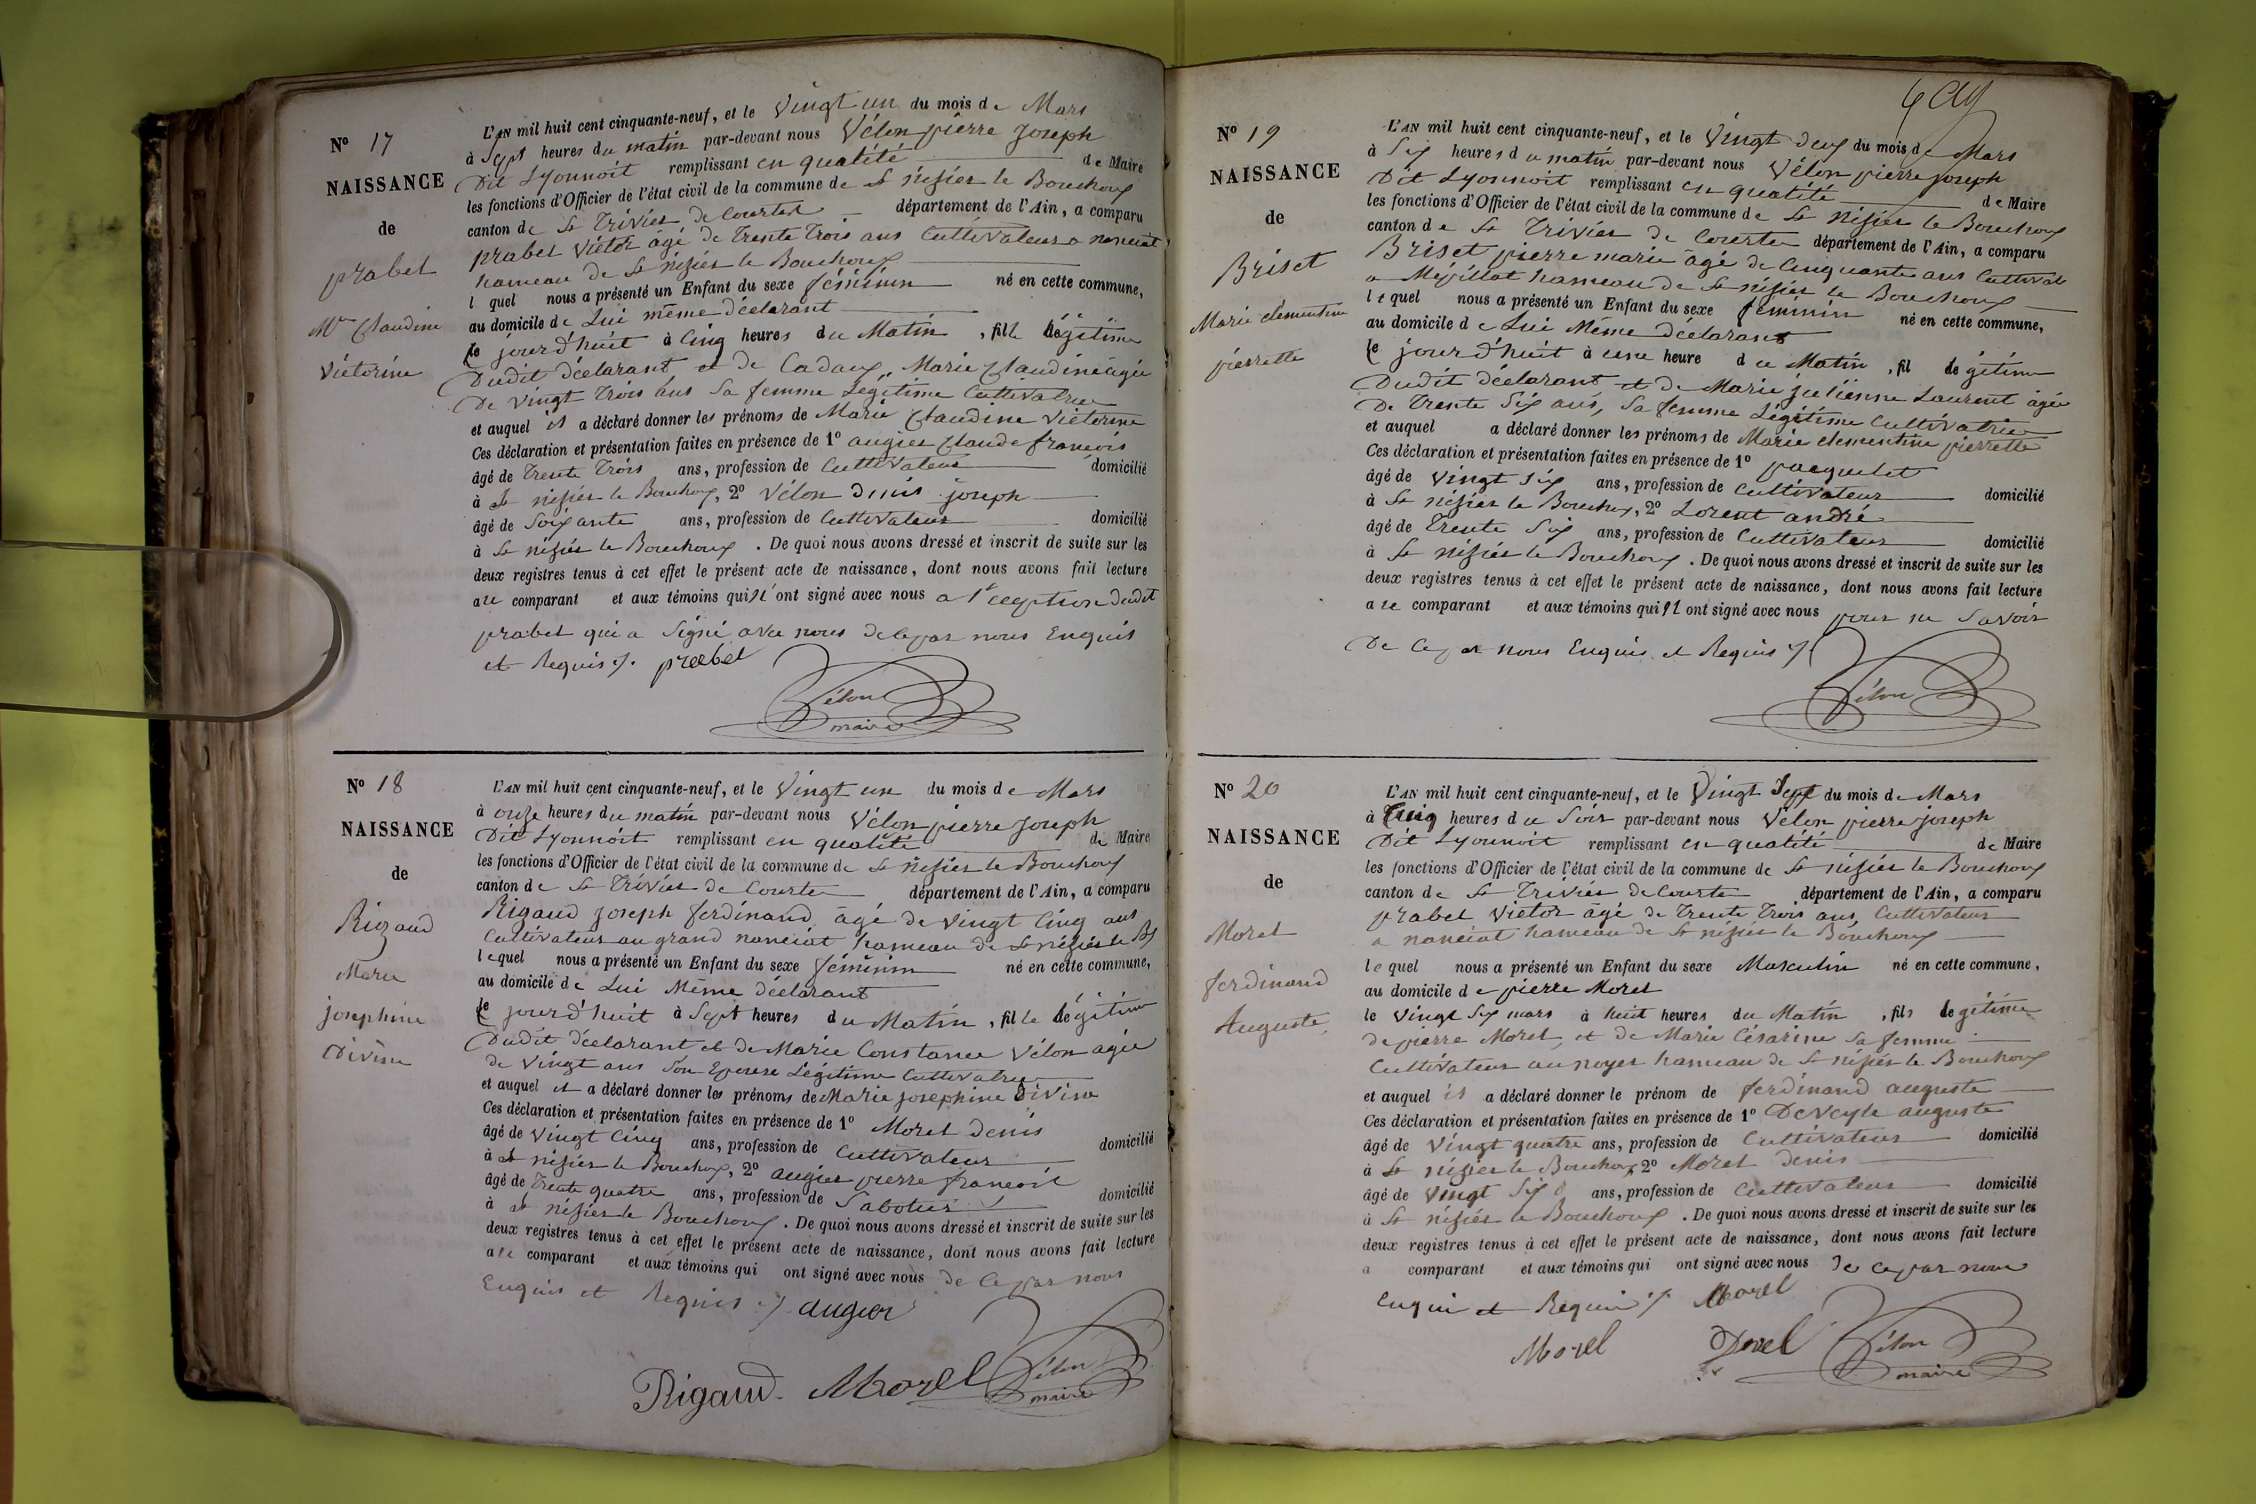 N° 17
NAISSANCE
de
prabel
Mie Claudine
Victorine
L'AN mil huit cent cinquante-neuf, et le Vingt un du mois de Mars
à Sept heures du matin par-devant nous Vélon pierre Joseph
Dit Lyonnoit remplissant en qualité de Maire
les fonctions d'Officier de l'état civil de la commune de St nisier le Bouchoux
canton de St Trivier de Courtes département de l'Ain, a comparu
prabel Victor âgé de Trente Trois ans Cultivateur a nanciat
hameau de St nizier le Bouchoux
l quel nous a présenté un Enfant du sexe féminin né en cette commune,
au domicile de Lui même déclarant
le jourd'huit à Cinq heures du Matin , fille légitime
Dudit déclarant et de Cadaux Marie Claudine âgée
De vingt Trois ans Sa femme Légitime Cultivatrice
et auquel il a déclaré donner les prénoms de Marie Claudine Victorine
Ces déclaration et présentation faites en présence de 1° augier Claude françois
âgé de Trente Trois ans, profession de Cultivateur domicilié
à St nisier le Bouchoux, 2° Vélon Denis joseph
âgé de Soixante ans, profession de Cultivateur domicilié
à St nisier le Bouchoux . De quoi nous avons dressé et inscrit de suite sur les
deux registres tenus à cet effet le présent acte de naissance, dont nous avons fait lecture
au comparant et aux témoins qui n'ont signé avec nous a l'éception dudit
prabel qui a Signé avec nous de ce par nous Enquis
et Requis ./. prabel
Vélon
maire
N° 18
NAISSANCE
de
Rigaud
Marie
josephine
Divine
L'AN mil huit cent cinquante-neuf, et le Vingt un du mois de Mars
à onze heures du matin par-devant nous Vélon pierre Joseph
Dit Lyonnoit remplissant en qualité de Maire
les fonctions d'Officier de l'état civil de la commune de St nisier le Bouchoux
canton de St Trivier de Courtes département de l'Ain, a comparu
Rigaud Joseph ferdinand âgé de vingt Cinq ans
Cultivateur au grand nanciat hameau de St nizier le Bx
lequel nous a présenté un Enfant du sexe féminin né en cette commune,
au domicile de Lui Même déclarant
le jourd'huit à Sept heures du Matin , fille légitime
Dudit déclarant et de Marie Constance Vélon agée
de vingt ans Son Epouse Légitime Cultivatrice
et auquel il a déclaré donner les prénoms de Marie josephine Divine
Ces déclaration et présentation faites en présence de 1° Morel Denis
âgé de vingt Cinq ans, profession de Cultivateur domicilié
à St nisier le Bouchoux, 2° augier pierre françois
âgé de Trente quatre ans, profession de Sabotier domicilié
à St nisier le Bouchoux . De quoi nous avons dressé et inscrit de suite sur les
deux registres tenus à cet effet le présent acte de naissance, dont nous avons fait lecture
au comparant et aux témoins qui ont signé avec nous de ce par nous
Enquis et Requis ./. augier
Rigaud Morel Vélon
maire
N° 19
NAISSANCE
de
Briset
Marie clementine
pierrette
L'AN mil huit cent cinquante-neuf, et le Vingt deux du mois de Mars
à Six heures du matin par-devant nous Vélon pierre joseph
Dit Lyonnoit remplissant en qualité de Maire
les fonctions d'Officier de l'état civil de la commune de St nisier le Bouchoux
canton de St Trivier de Courtes département de l'Ain, a comparu
Briset pierre marie âgé de Cinquante ans Cultivat
a Mépillat hameau de St nisier le Bouchoux
lequel nous a présenté un Enfant du sexe féminin né en cette commune,
au domicile de Lui Même déclarant
le jourd'huit à une heure du Matin , fil légitime
Dudit déclarant et de Marie julienne Laurent âgée
De Trente Six ans, Sa femme Légitime Cultivatrice
et auquel a déclaré donner les prénoms de Marie clementine pierrette
Ces déclaration et présentation faites en présence de 1° pacquelet
âgé de vingt Six ans, profession de Cultivateur domicilié
à St nisier le Bouchoux, 2° Lorent andré
âgé de Trente Six ans, profession de Cultivateur domicilié
à St nisier le Bouchoux . De quoi nous avons dressé et inscrit de suite sur les
deux registres tenus à cet effet le présent acte de naissance, dont nous avons fait lecture
au comparant et aux témoins qui n ont signé avec nous pour ne Savoir
De ce par nous Enquis et Requis ./.
Vélon
N° 20
NAISSANCE
de
Morel
ferdinand
Auguste
L'AN mil huit cent cinquante-neuf, et le Vingt Sept du mois de Mars
à Cinq heures du Soir par-devant nous Vélon pierre joseph
Dit Lyonnoit remplissant en qualité de Maire
les fonctions d'Officier de l'état civil de la commune de St nisier le Bouchoux
canton de St Trivier de Courtes département de l'Ain, a comparu
prabel Victor âgé de Trente Trois ans Cultivateur
a nanciat hameau de St nisier le Bouchoux
lequel nous a présenté un Enfant du sexe Masculin né en cette commune,
au domicile de pierre Morel
le Vingt Six mars à huit heures du Matin , fils légitime
de pierre Morel et de Marie Césarine Sa femme
Cultivateur au noyer hameau de St nisier le Bouchoux
et auquel il a déclaré donner le prénom de ferdinand auguste
Ces déclaration et présentation faites en présence de 1° Deveyle auguste
âgé de Vingt quatre ans, profession de Cultivateur domicilié
à St nisier le Bouchoux 2° Morel Denis
âgé de Vingt Six ans, profession de Cultivateur domicilié
à St nisier le Bouchoux . De quoi nous avons dressé et inscrit de suite sur les
deux registres tenus à cet effet le présent acte de naissance, dont nous avons fait lecture
a comparant et aux témoins qui ont signé avec nous de ce par nous
Enquis et Requis ./. Morel
Morel Vélon
maire